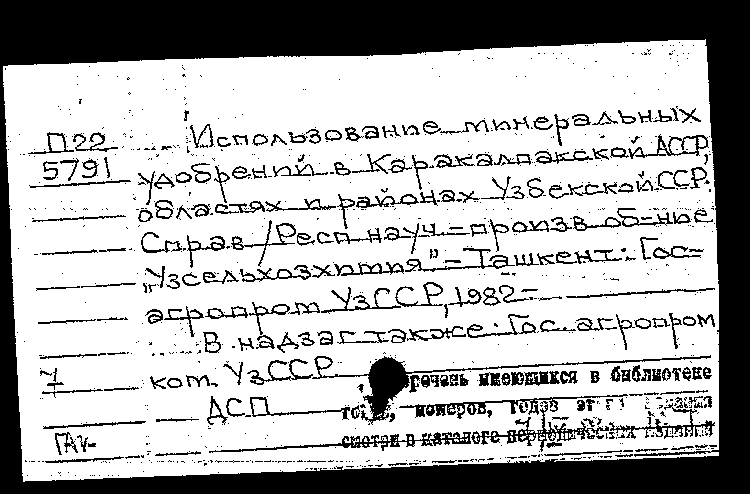 П22 Использование минеральных
5791 удобрений в Каракалпакской АССР,
областях и районах Узбекской ССР.
Справ /Респ науч-произв об-ние
„Узсельхозхимия" – Ташкент: Гос-
агропром УзССР, 1982–
В надзаг также: Гос. агропром
7 ком. УзССР
речень имеющихся в библиотеке
ДСП номеров, годов
ГАУ- смотри в каталоге периодических изданий